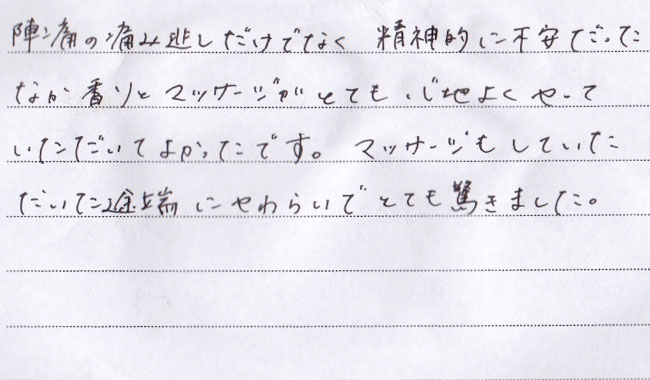 陣痛の痛み逃しだけでなく 精神的に不安でだった
なか香りとマッサージがとても心地よくやって
いただいてよかったです。マッサージもしていた
だいた途端にやわらいでとても驚きました。